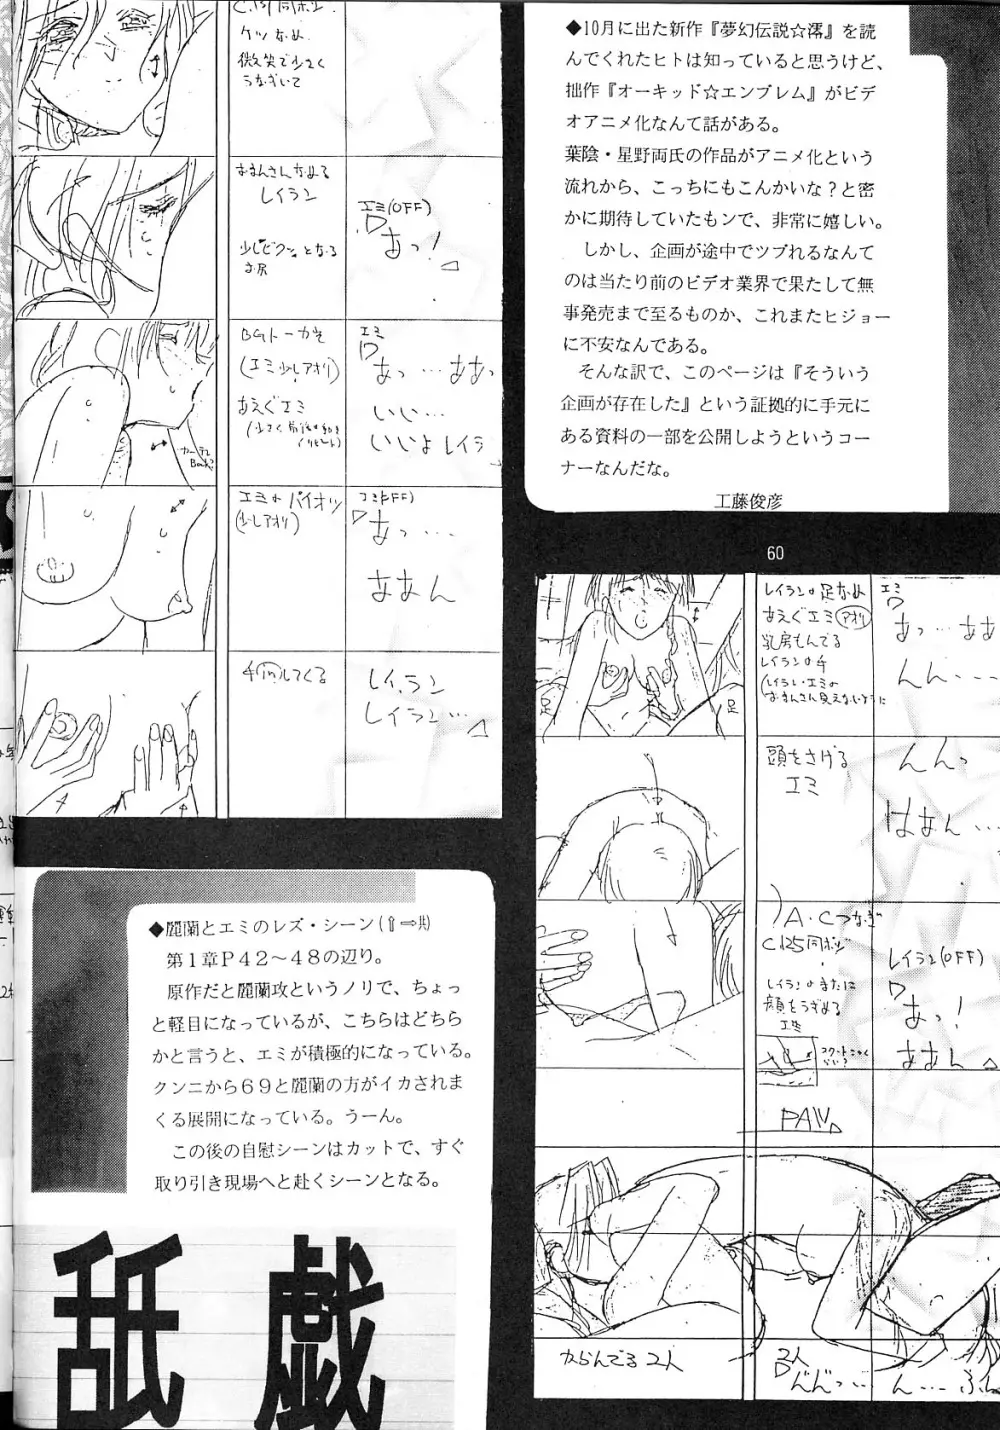 C.131同ポジ
ケツなめ
微笑で少さく
うなずいて
おまんさんなめる
レイラン
少しビクッとなる
お尻
エミ(OFF)
あっ!
BGトーカギ
(エミ少しアオリ)
あえぐエミ
エミ
あっ…ああっ
いい…
いいよレイラン
エミのパイオツ
(少しアオリ)
エミ(OFF)
あっ…
ああん
手inしてくる
レイラン
レイラン…
◆10月に出た新作『夢幻伝説☆澪』を読
んでくれたヒトは知っていると思うけど、
拙作『オーキッド☆エンブレム』がビデ
オアニメ化なんて話がある。
葉陰・星野両氏の作品がアニメ化という
流れから、こっちにもこんかいな？と密
かに期待していたもンで、非常に嬉しい。
しかし、企画が途中でツブれるなんて
のは当たり前のビデオ業界で果たして無
事発売まで至るものか、これまたヒジョー
に不安なんである。
そんな訳で、このページは『そういう
企画が存在した』という証拠的に手元に
ある資料の一部を公開しようというコー
ナーなんだな。
工藤俊彦
60
レイランの足なめ
あえぐエミ(アオリ)
乳房もんでる
レイランの手
(レイラン・エミの
おまんさん見えないように
足
足
エミ
あっ…ああ
んん…
頭をさげる
エミ
んんっ
はあん…
A・Cつなぎ
C125同ポジ
レイランのまたに
顔をうずめる
エミ
レイラン(OFF)
あっ!
ああん
PAN
からんでる2人
2人
んん…
◆麗蘭とエミのレズ・シーン(⇧⇨共)
第１章Ｐ４２～４８の辺り。
原作だと麗蘭攻というノリで、ちょっ
と軽目になっているが、こちらはどちら
かと言うと、エミが積極的になっている。
クンニから６９と麗蘭の方がイカされま
くる展開になっている。うーん。
この後の自慰シーンはカットで、すぐ
取り引き現場へと赴くシーンとなる。
舐戯